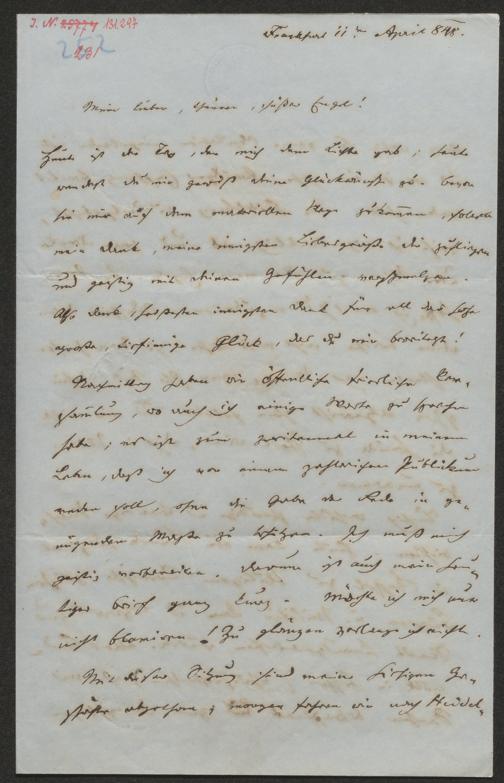 J. N. 25774 131.297
252
231
Frankfurt 11ten April 848.
Mein lieber, theurer, süßer Engel!
Heute ist der Tag, der mich dem Licht gab; heute
sendest du mir gewiß deine Glückwünsche zu. bevor
sie mir auf dem materiellen Wege zukommen,
mein Dank, meine innigsten Liebesgrüße dir
und geistig mit deinen Gefühlen
Also Dank, heißesten innigsten Dank für all das hohe
große, Glück, das du mir bereitest!
Nachmittag haben wir öffentliche feierliche Ver-
sammlung, wo auch ich einige Worte zu sprechen
habe; es ist zum zweitenmal in meinem
Leben, daß ich vor einem zahlreichen Publikum
reden soll, ohne die Gabe der Rede in ge-
nügendem Maße zu besitzen. Ich muß mich
geistig vorbereiten, darum ist auch mein heu-
tiger Brief ganz kurz. Möchte ich mich nur
nicht blamiren! Zu glänzen verlange ich nicht.
Mit dieser Sitzung sind meine hiesigen Ge-
schäfte abgethan; morgen fahren wir nach Heidel-